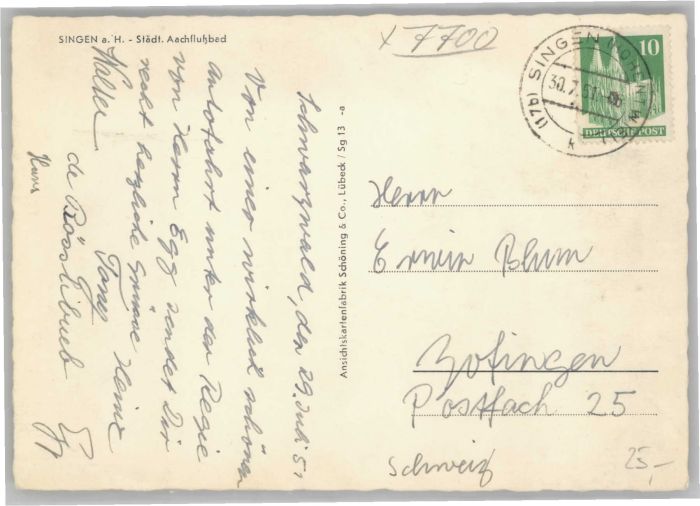 SINGEN a. H. - Städt. Aachflußbad
x 7700
(17b) SINGEN (HOHENTWIEL)
30.7.51
k
10
DEUTSCHE POST
Schwarzwald, den 29. Juli 51
Von einer wirklich schönen
Autofahrt unter der Regie
von Herrn Egg sendet Dir
recht herzliche Grüsse Heinz
Walter
de Rösslibueb
Hans
Egg
Ansichtskartenfabrik Schöning & Co., Lübeck / Sg 13 -a
Herrn
Erwin Blum
Zofingen
Postfach 25
Schweiz
25,-